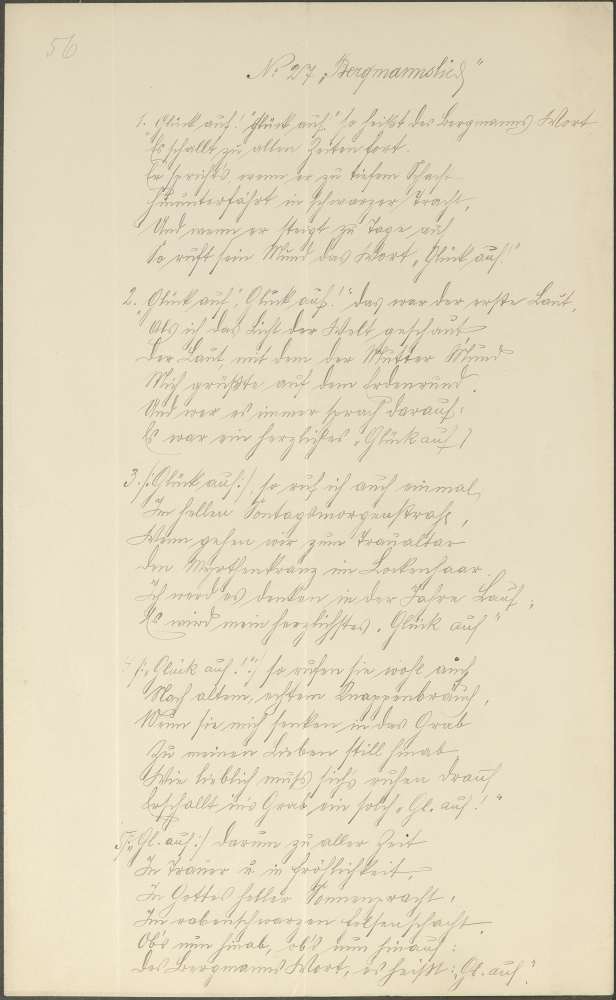 56
No 27 „Bergmannslied"
1. Glück auf! "Glück auf" so heißt des Bergmanns Wort
Es schallt zu allen Zeiten fort.
Er spricht's wenn er zu tiefem Schacht
Hinunterfährt in schwarzer Tracht,
Und wenn er steigt zu Tage auf
So ruft sein Mund das Wort „Glück auf!"
2. „Glück auf", Glück auf!" das war der erste Laut,
Als ich das Licht der Welt geschaut
Der Laut, mit dem der Mutter Mund
Mich grüßte auf dem Erdenrund.
Und wer es immer sprach darauf:
Es war ein herzliches „Glück auf"
3. /:Glück auf:/, so ruf ich auch einmal,
Im hellen Sontagsmorgenstrahl,
Wenn gehen wir zum Traualtar
Den Myrthenkranz im Lockenhaar.
Ich werd es denken in der Jahre Lauf;
Es wird mein herzlichstes „Glück auf"
4 /:„Glück auf!":/ so rufen sie wohl auch
Nach altem, echtem Knappenbrauch,
Wenn sie mich senken in das Grab
Zu meinen Lieben still hinab
Wie lieblich muß sich's ruhen drauf
Erschallt in's Grab ein solch „Gl. auf!"
5/:„Gl. auf:/ darum zu aller Zeit
In Trauer u. in Fröhlichkeit,
In Gottes heller Sonnenpracht,
Im rabenschwarzen Felsenschacht.
Ob's nun hinab, ob's nun hinauf:
Des Bergmanns Wort, es heißt: „Gl. auf."